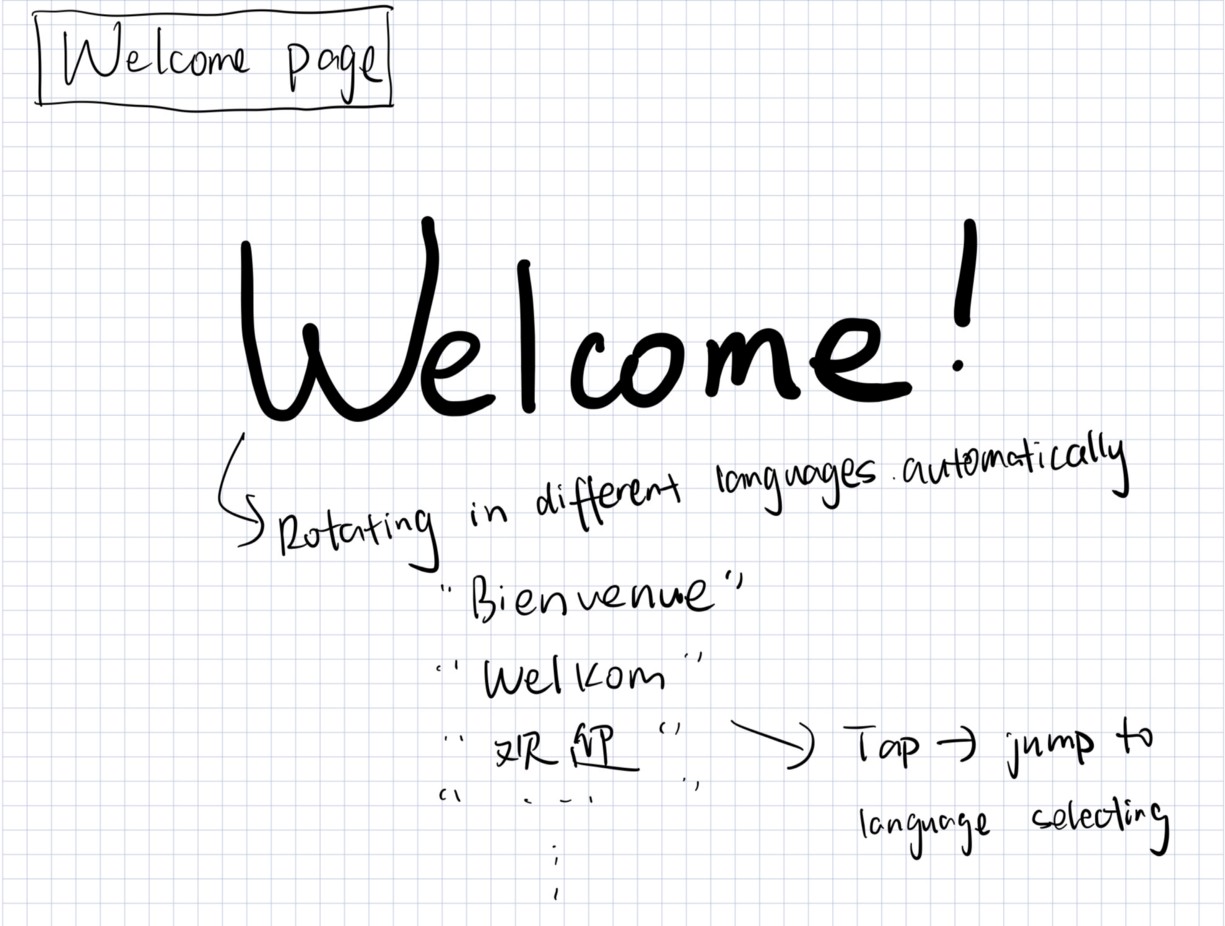 Welcome page
Welcome!
Rotating in different languages automatically
"Bienvenue"
"Welkom"
"欢迎"
Tap → jump to
language selecting